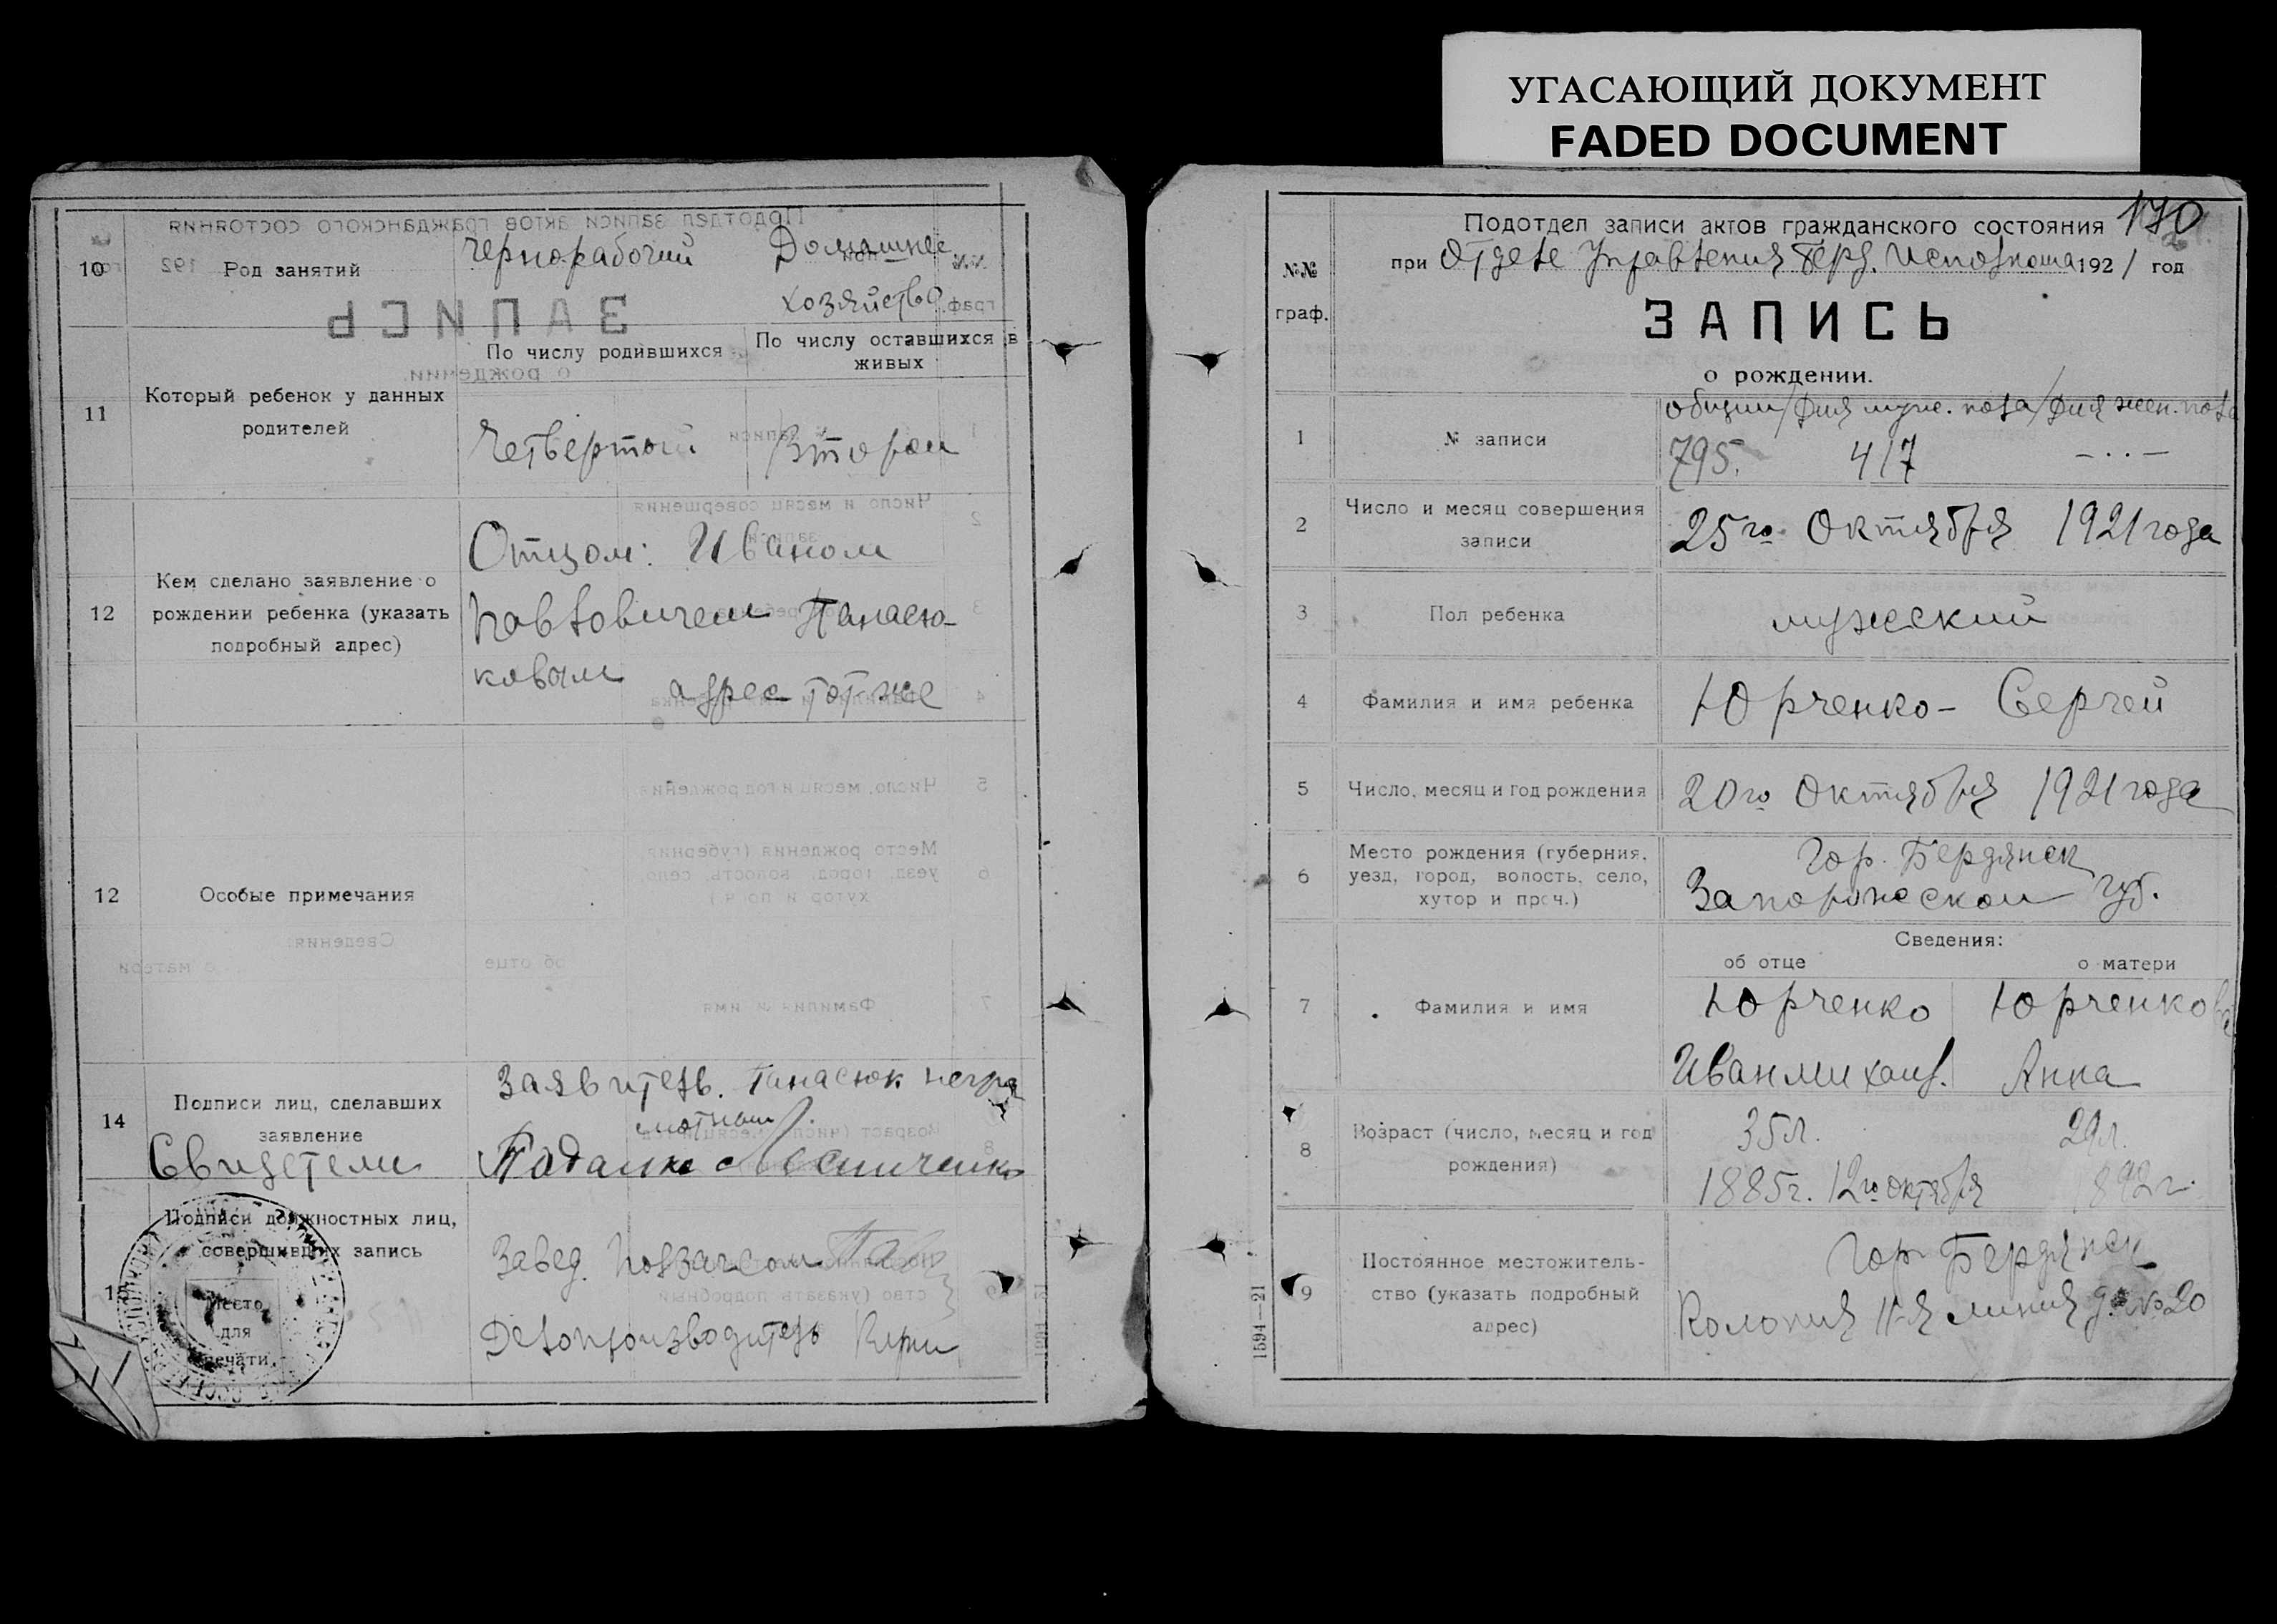 УГАСАЮЩИЙ ДОКУМЕНТ
FADED DOCUMENT
10
Род занятий
Чернорабочий
Домашнее
хозяйство
11
Который ребенок у данных
родителей
По числу родившихся
По числу оставшихся в
живых
Четвертый
Второй
12
Кем сделано заявление о
рождении ребенка (указать
подробный адрес)
Отцом: Иваном
Павловичем Панасю-
ковым адрес тот же
12
Особые примечания
14
Подписи лиц, сделавших
заявление
Свидетели
Заявитель. Панасюк негра
мотный
Подписи должностных лиц,
совершивших запись
Место
для
печати.
Завед. Подзагсом
Делопроизводитель
170
Подотдел записи актов гражданского состояния
при Отделе Управления Берд. Исполкома 1921 год
№№
граф.
ЗАПИСЬ
о рождении.
общий/для муж. пола/для жен. пола
1
№ записи
795. 417 - . . -
2
Число и месяц совершения
записи
25го Октября 1921 года
3
Пол ребенка
мужеский
4
Фамилия и имя ребенка
Юрченко - Сергей
5
Число, месяц и год рождения
20го Октября 1921 года
6
Место рождения (губерния,
уезд, город, волость, село,
хутор и проч.)
Гор. Бердянск
Запорожской губ.
Сведения:
об отце
о матери
7
Фамилия и имя
Юрченко
Юрченкова
Иван Михаил.
Анна
8
Возраст (число, месяц и год
рождения)
35л.
29л.
1885г. 12го октября
1892г.
9
Постоянное местожитель-
ство (указать подробный
адрес)
Гор. Бердянск
Колония 11-я линия д. №20
1594—21